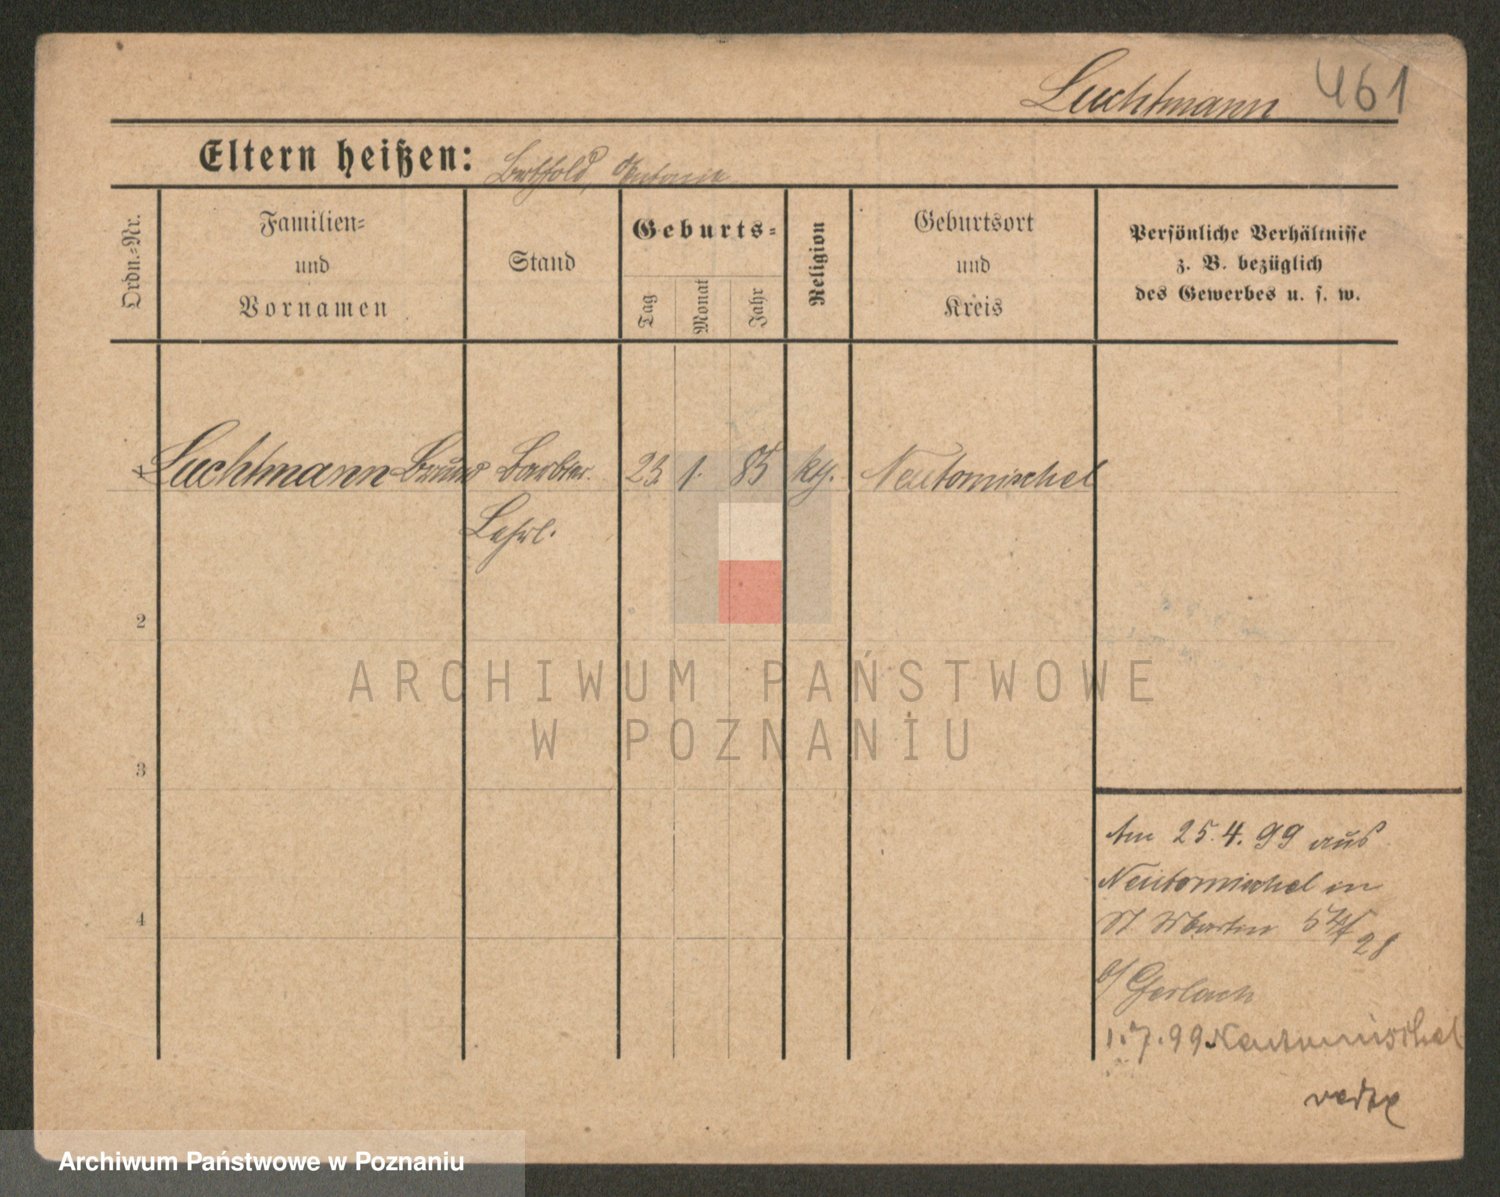 Luchtmann 461
Eltern heißen: Berthold, Antonie
Ordn.-Nr.
Familien-
und
Vornamen
Stand
Geburts-
Tag
Monat
Jahr
Religion
Geburtsort
und
Kreis
Persönliche Verhältnisse
z. B. bezüglich
des Gewerbes u. s. w.
Luchtmann Bruno Barbier 23. 1. 85 kth. Neutomischel
Lehrl.
2
ARCHIWUM PAŃSTWOWE
W POZNANIU
3
Am 25.4.99 aus
Neutomischel in
4
St Martin 54/28
b/ Gerlach
1.7.99 Neutomischel
Archiwum Państwowe w Poznaniu